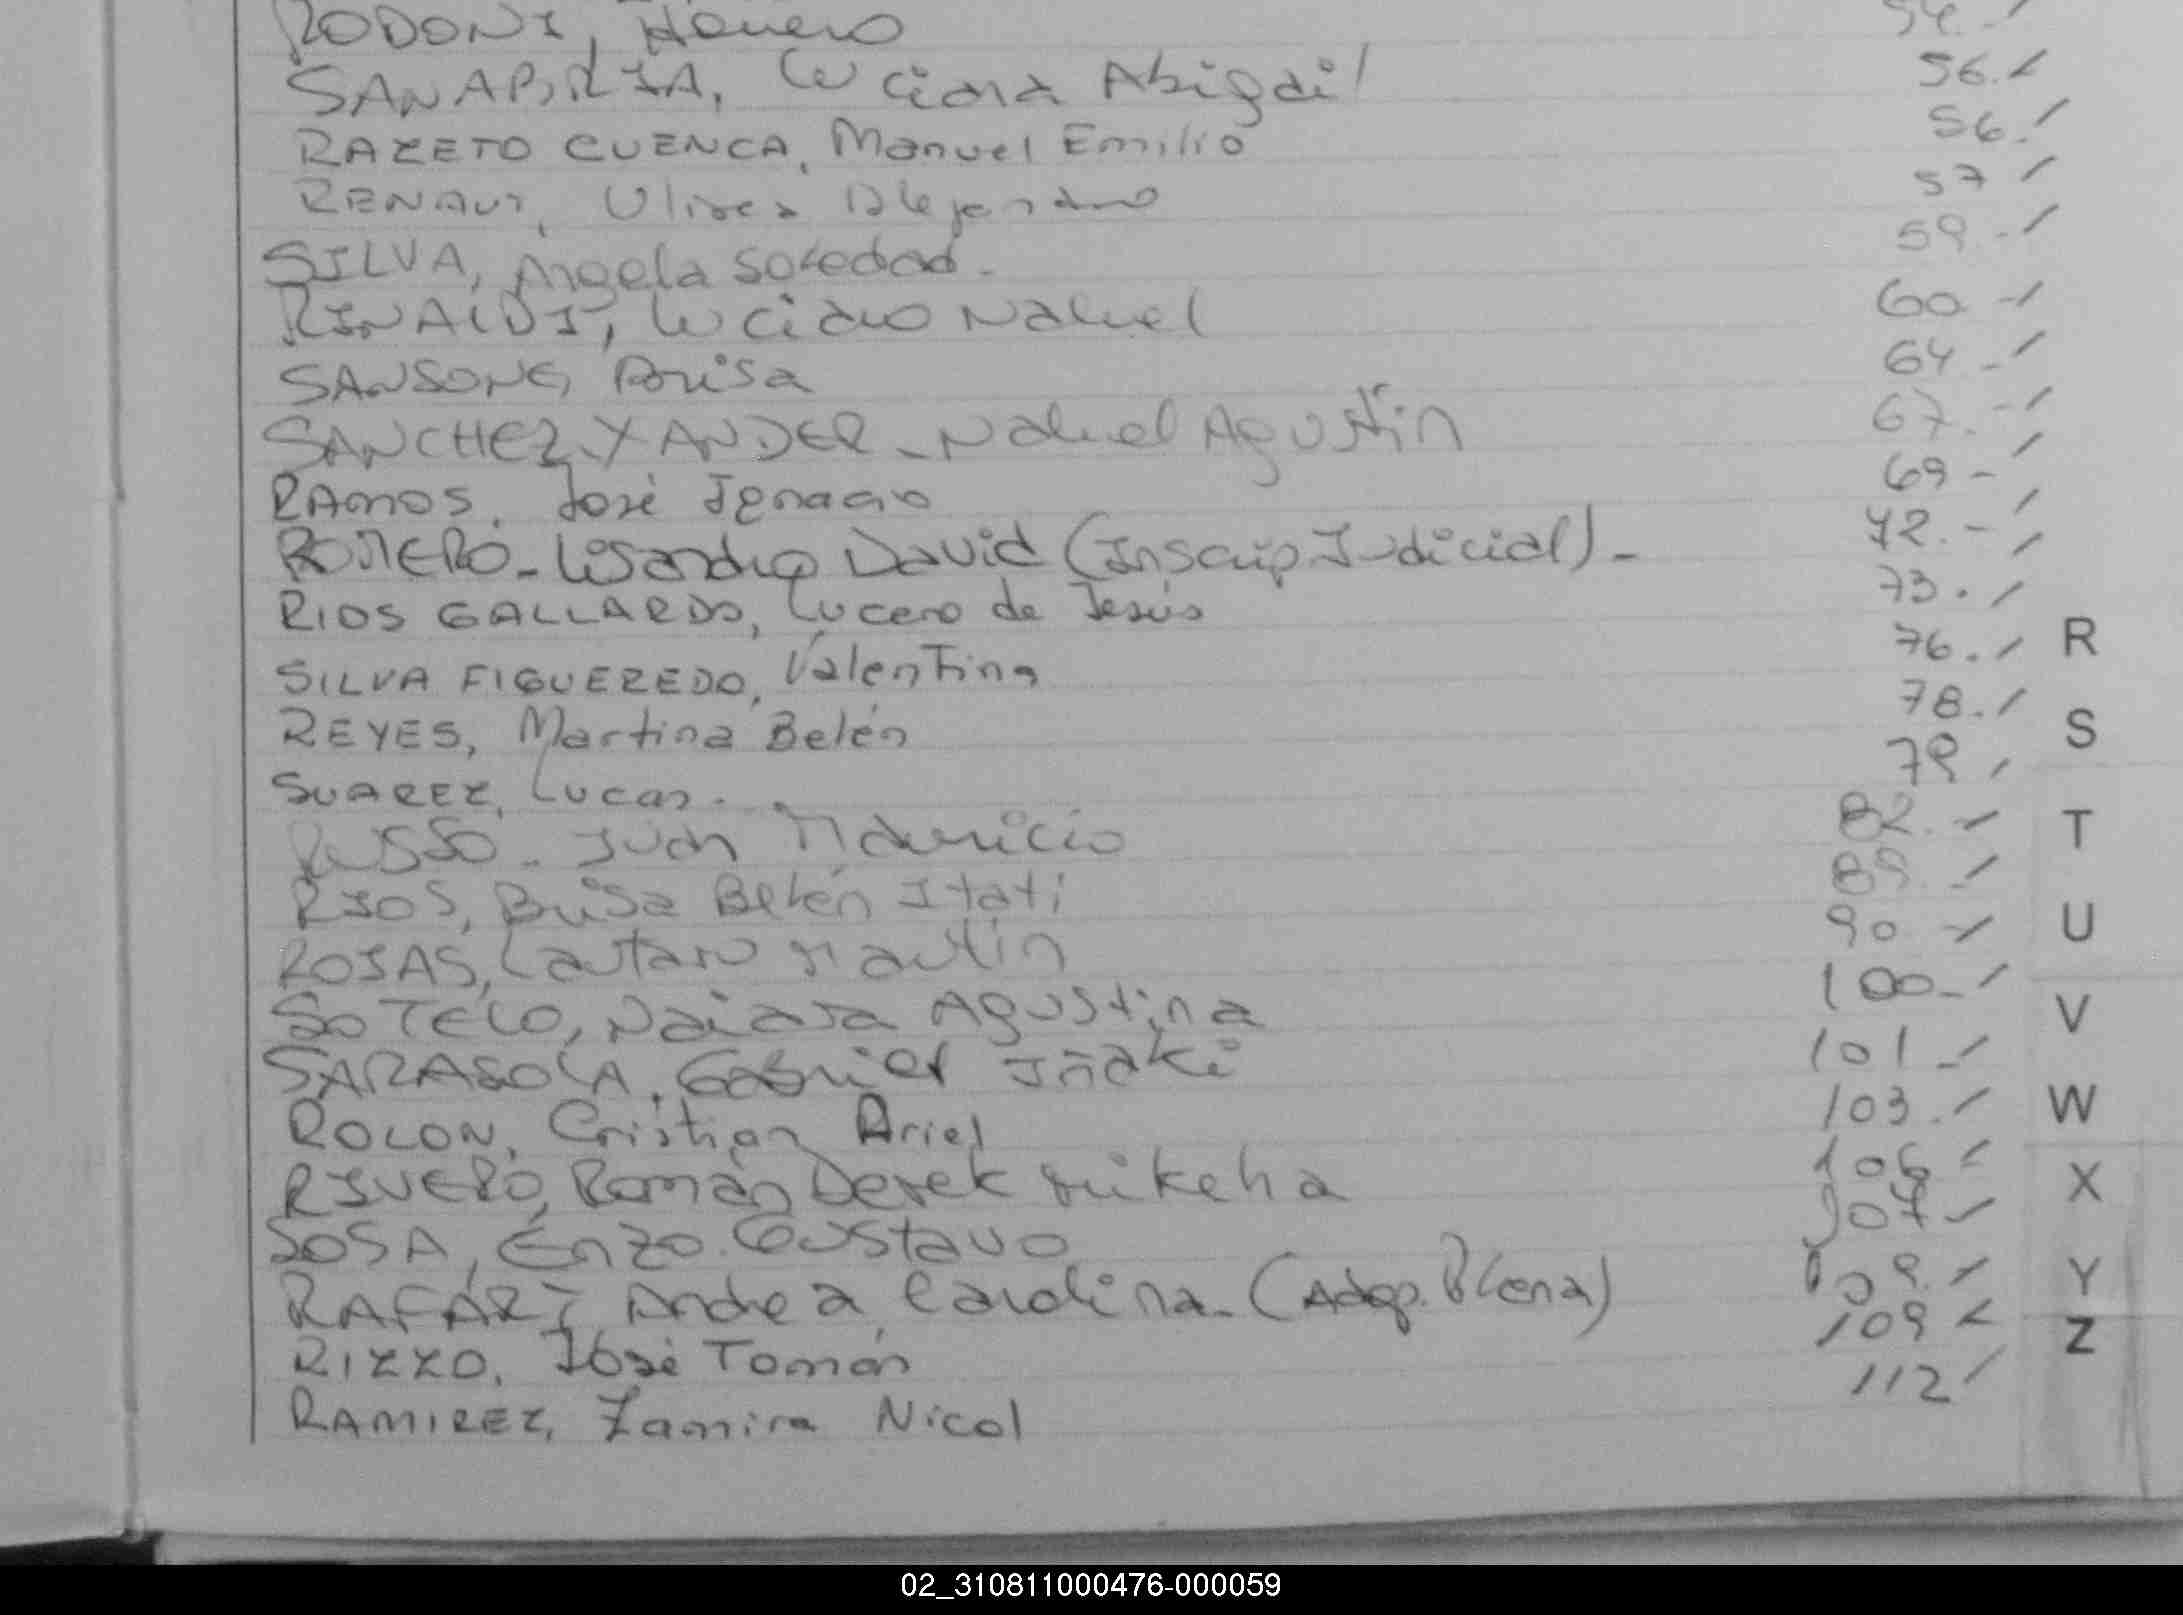 RODONI, Homero 54.-/
SANABRIA, Luciana Abigail 56./
RAZETO CUENCA, Manuel Emilio 56./
RENAUT, Ulises Alejandro 57/
SILVA, Angela Soledad.- 59.-/
RINALDI, Luciano Nahuel 60-/
SANSONE, Brisa 64-/
SANCHEZ YANDER-Nahuel Agustín 67.-/
RAMOS, José Ignacio 69-/
ROMERO-Lisandro David (Inscrip. Judicial)- 72.-/
RIOS GALLARDO, Lucero de Jesús 73./
SILVA FIGUEREDO, Valentina 76./
REYES, Martina Belén 78./
SUAREZ, Lucas. 79/
RUSSO-Juan Mauricio 82.-/
RIOS, Brisa Belén Itatí 89.-/
ROJAS, Lautaro Martín 90-/
SOTELO, Naiara Agustina 100-/
SARASOLA, Gabriel Iñaki 101-/
ROLON, Cristian Ariel 103./
RIVERO, Román Derek 106/
SOSA, Enzo Gustavo 107/
RAFART, Andrea Carolina-(Adop. Plena) 109./
RIZZO, José Tomás 109/
RAMIREZ, Zamira Nicol 112/
R
S
T
U
V
W
X
Y
Z
02_310811000476-000059